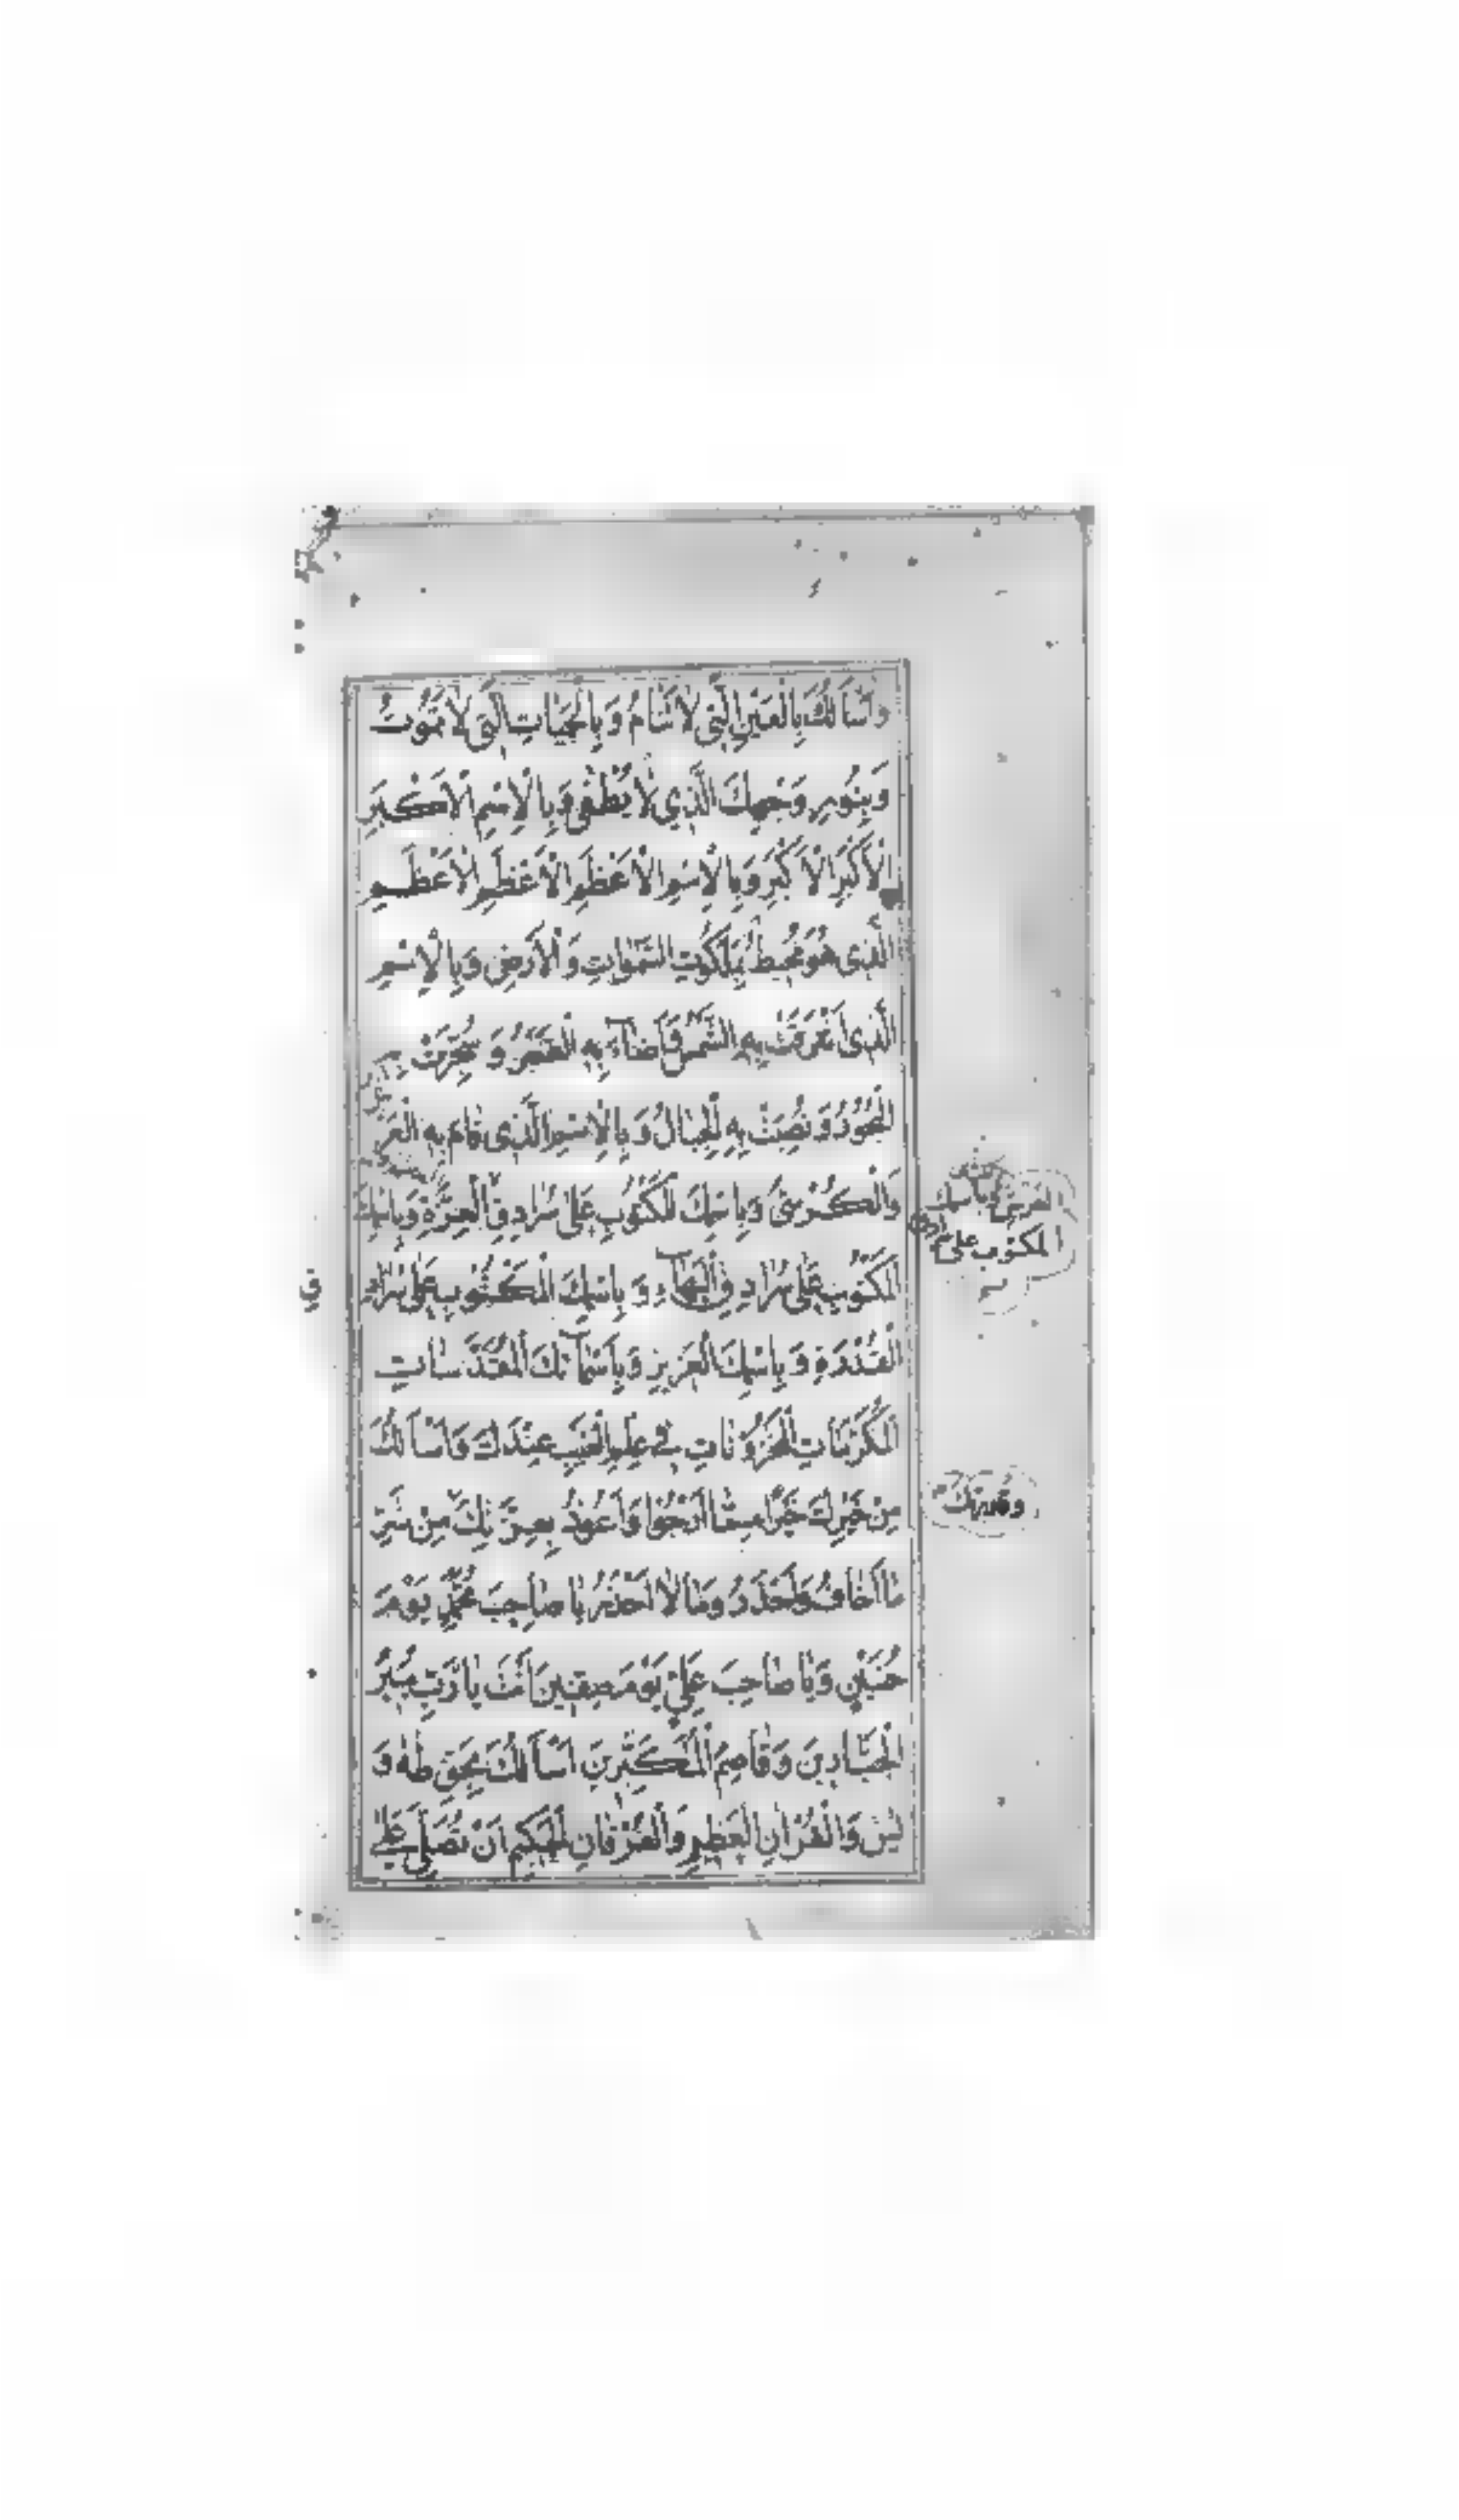 وَاَسْاَلُكَ بِالْعَيْنِ الَّتي لاٰ تَنٰامُ وَبِالْحَيٰاتِ الَّتي لاٰ تَمُوتُ
وَبِنُورِ وَجْهِكَ الَّذِي لاٰ يُطْفٰى وَبِالْاِسْمِ الْاَكْبَرِ
الْاَكْبَرِ الْاَكْبَرِ وَبِالْاِسْمِ الْاَعْظَمِ الْاَعْظَمِ الْاَعْظَمِ
الَّذى هُوَ مُحيطٌ بِمَلَكُوتِ السَّمٰوٰاتِ وَالْاَرْضِ وَبِالْاِسْمِ
الَّذى اَشْرَقَتْ بِهِ الشَّمْسُ وَاَضٰآءَ بِهِ الْقَمَرُ وَسُجِّرَتْ بِهِ
الْبُحُورُ وَنُصِبَتْ بِهِ الْجِبٰالُ وَبِالْاِسْمِ الَّذى قٰامَ بِهِ الْعَرْشُ
وَالْكُرْسِىُّ وَبِاسْمِكَ الْمَكْتُوبِ عَلىٰ سُرٰادِقِ الْعِزَّةِ وَبِاسْمِكَ
الْمَكْتُوبِ عَلىٰ سُرٰادِقِ الْبَهٰآءِ وَبِاسْمِكَ الْمَكْتُوبِ عَلىٰ سُرٰادِقِ
الْقُدْرَةِ وَبِاسْمِكَ الْعَزيزِ وَبِاَسْمٰآئِكَ الْمُقَدَّسٰاتِ
الْمُكَرَّمٰاتِ الْمَخْزُونٰاتِ فى عِلْمِ الْغَيْبِ عِنْدَكَ وَاَسْاَلُكَ
مِنْ خَيْرِكَ خَيْرًا مِمّٰا اَرْجُوا وَاَعُوذُ بِعِزَّتِكَ مِنْ شَرِّ
مٰا اَخٰافُ وَاَحْذَرُ وَمٰا لاٰ اَحْذَرُ يٰا صٰاحِبَ مُحَمَّدٍ يَوْمَ
حُنَيْنٍ وَيٰا صٰاحِبَ عَلِيٍّ يَوْمَ صِفّينَ اَنْتَ يٰا رَبِّ مُبيرُ
الْجَبّٰارينَ وَقٰاصِمُ الْمُتَكَبِّرينَ اَسْاَلُكَ بِحَقِّ طٰهٰ وَ
يٰسٓ وَالْقُرْاٰنِ الْعَظيمِ وَالْفُرْقٰانِ الْحَكيمِ اَنْ تُصَلِّىَ عَلىٰ
العرش وباسمك
المكتوب على
وقدرتك